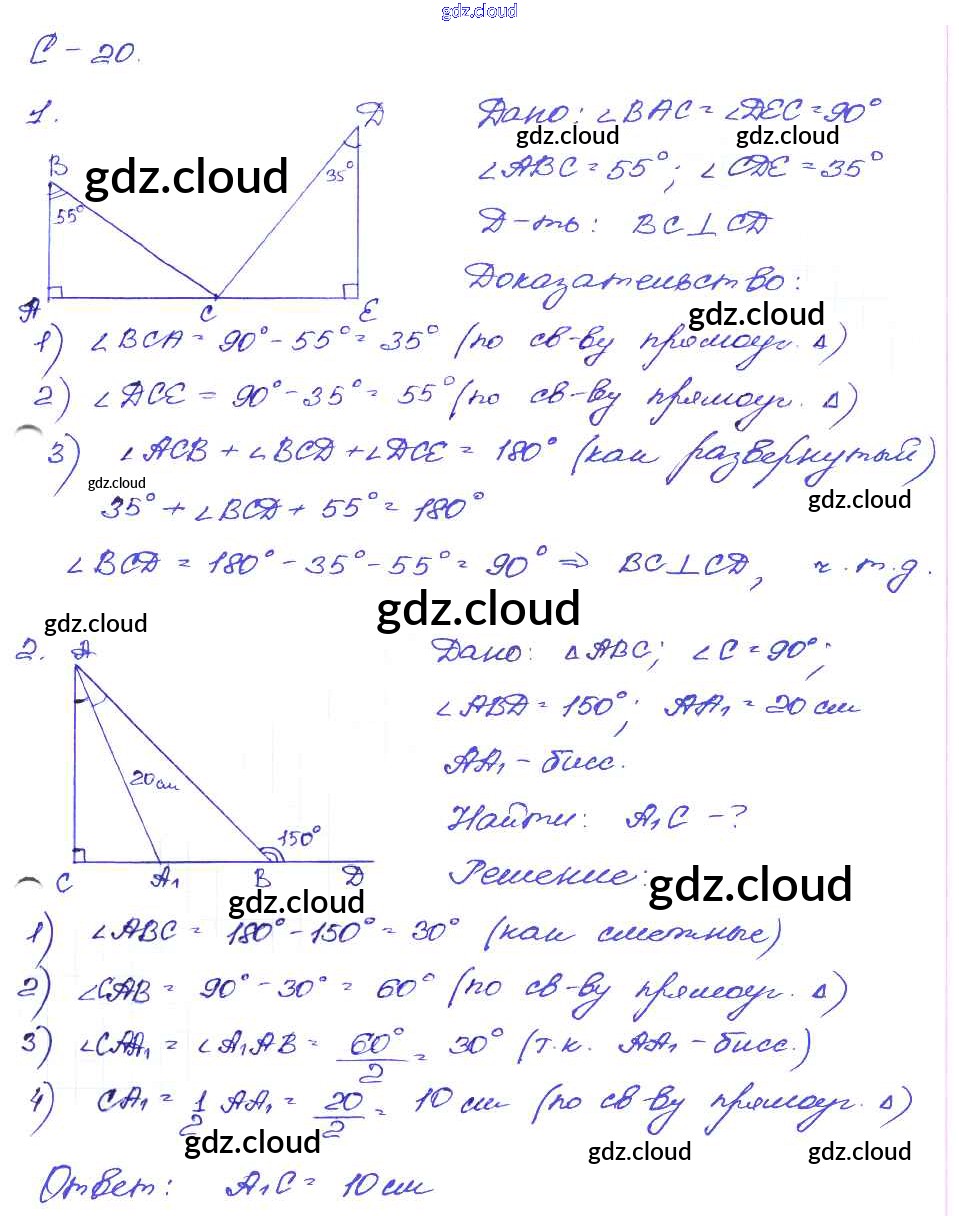 gdz.cloud
С-20.
1.
Дано: ∠BAC = ∠DEC = 90°
gdz.cloud gdz.cloud
∠ABC = 55°; ∠CDE = 35°
Д-ть: BC⊥CD
Доказательство:
gdz.cloud
D
B
gdz.cloud
35°
55°
A C E
1) ∠BCA = 90° - 55° = 35° (по св-ву прямоуг. Δ)
2) ∠DCE = 90° - 35° = 55° (по св-ву прямоуг. Δ)
3) ∠ACB + ∠BCD + ∠DCE = 180° (как развернутый)
gdz.cloud gdz.cloud
35° + ∠BCD + 55° = 180°
∠BCD = 180° - 35° - 55° = 90° ⇒ BC⊥CD, ч.т.д.
gdz.cloud
gdz.cloud
2.
A
20 см
150°
C A₁ B D
gdz.cloud
Дано: ΔABC; ∠C = 90°;
∠ABD = 150°; AA₁ = 20 см
AA₁ - бисс.
Найти: A₁C - ?
Решение:
gdz.cloud
1) ∠ABC = 180° - 150° = 30° (как смежные)
2) ∠CAB = 90° - 30° = 60° (по св-ву прямоуг. Δ)
3) ∠CAA₁ = ∠A₁AB = 60°/2 = 30° (т.к. AA₁ - бисс.)
4) CA₁ = 1/2 AA₁ = 20/2 = 10 см (по св-ву прямоуг. Δ)
gdz.cloud gdz.cloud gdz.cloud
Ответ: A₁C = 10 см